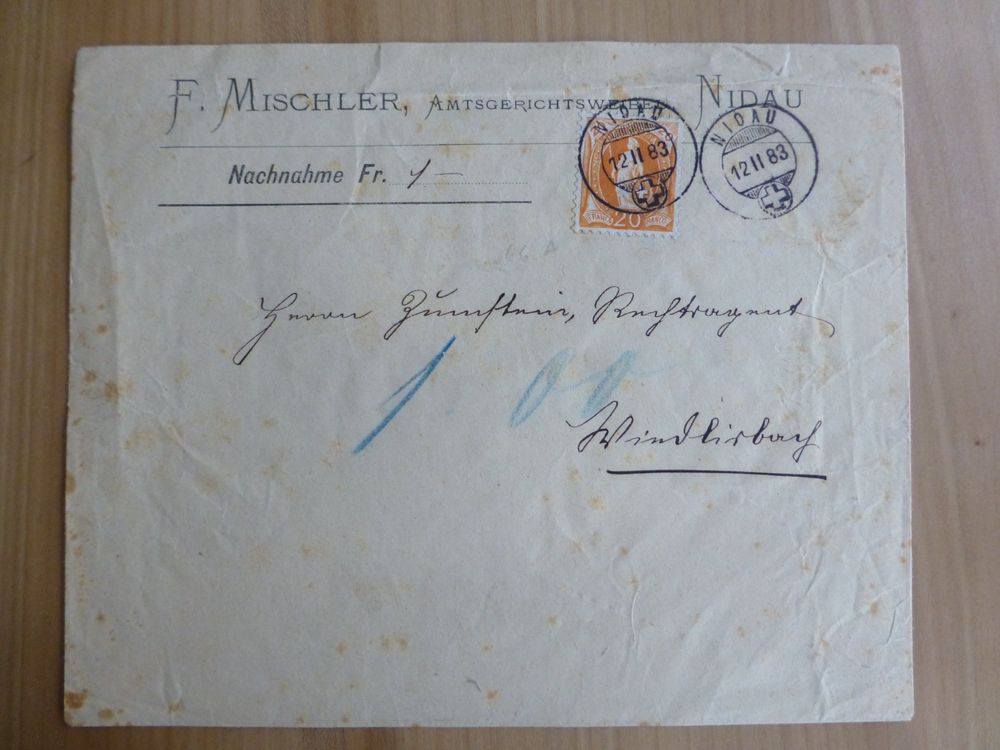 F. MISCHLER, AMTSGERICHTSWEIBEL NIDAU
Nachnahme Fr. 1 —
NIDAU
12 II 83
FRANCO 20 FRANCO
NIDAU
12 II 83
Herrn Zumstein, Rechtsagent
1 00
Wiedlisbach